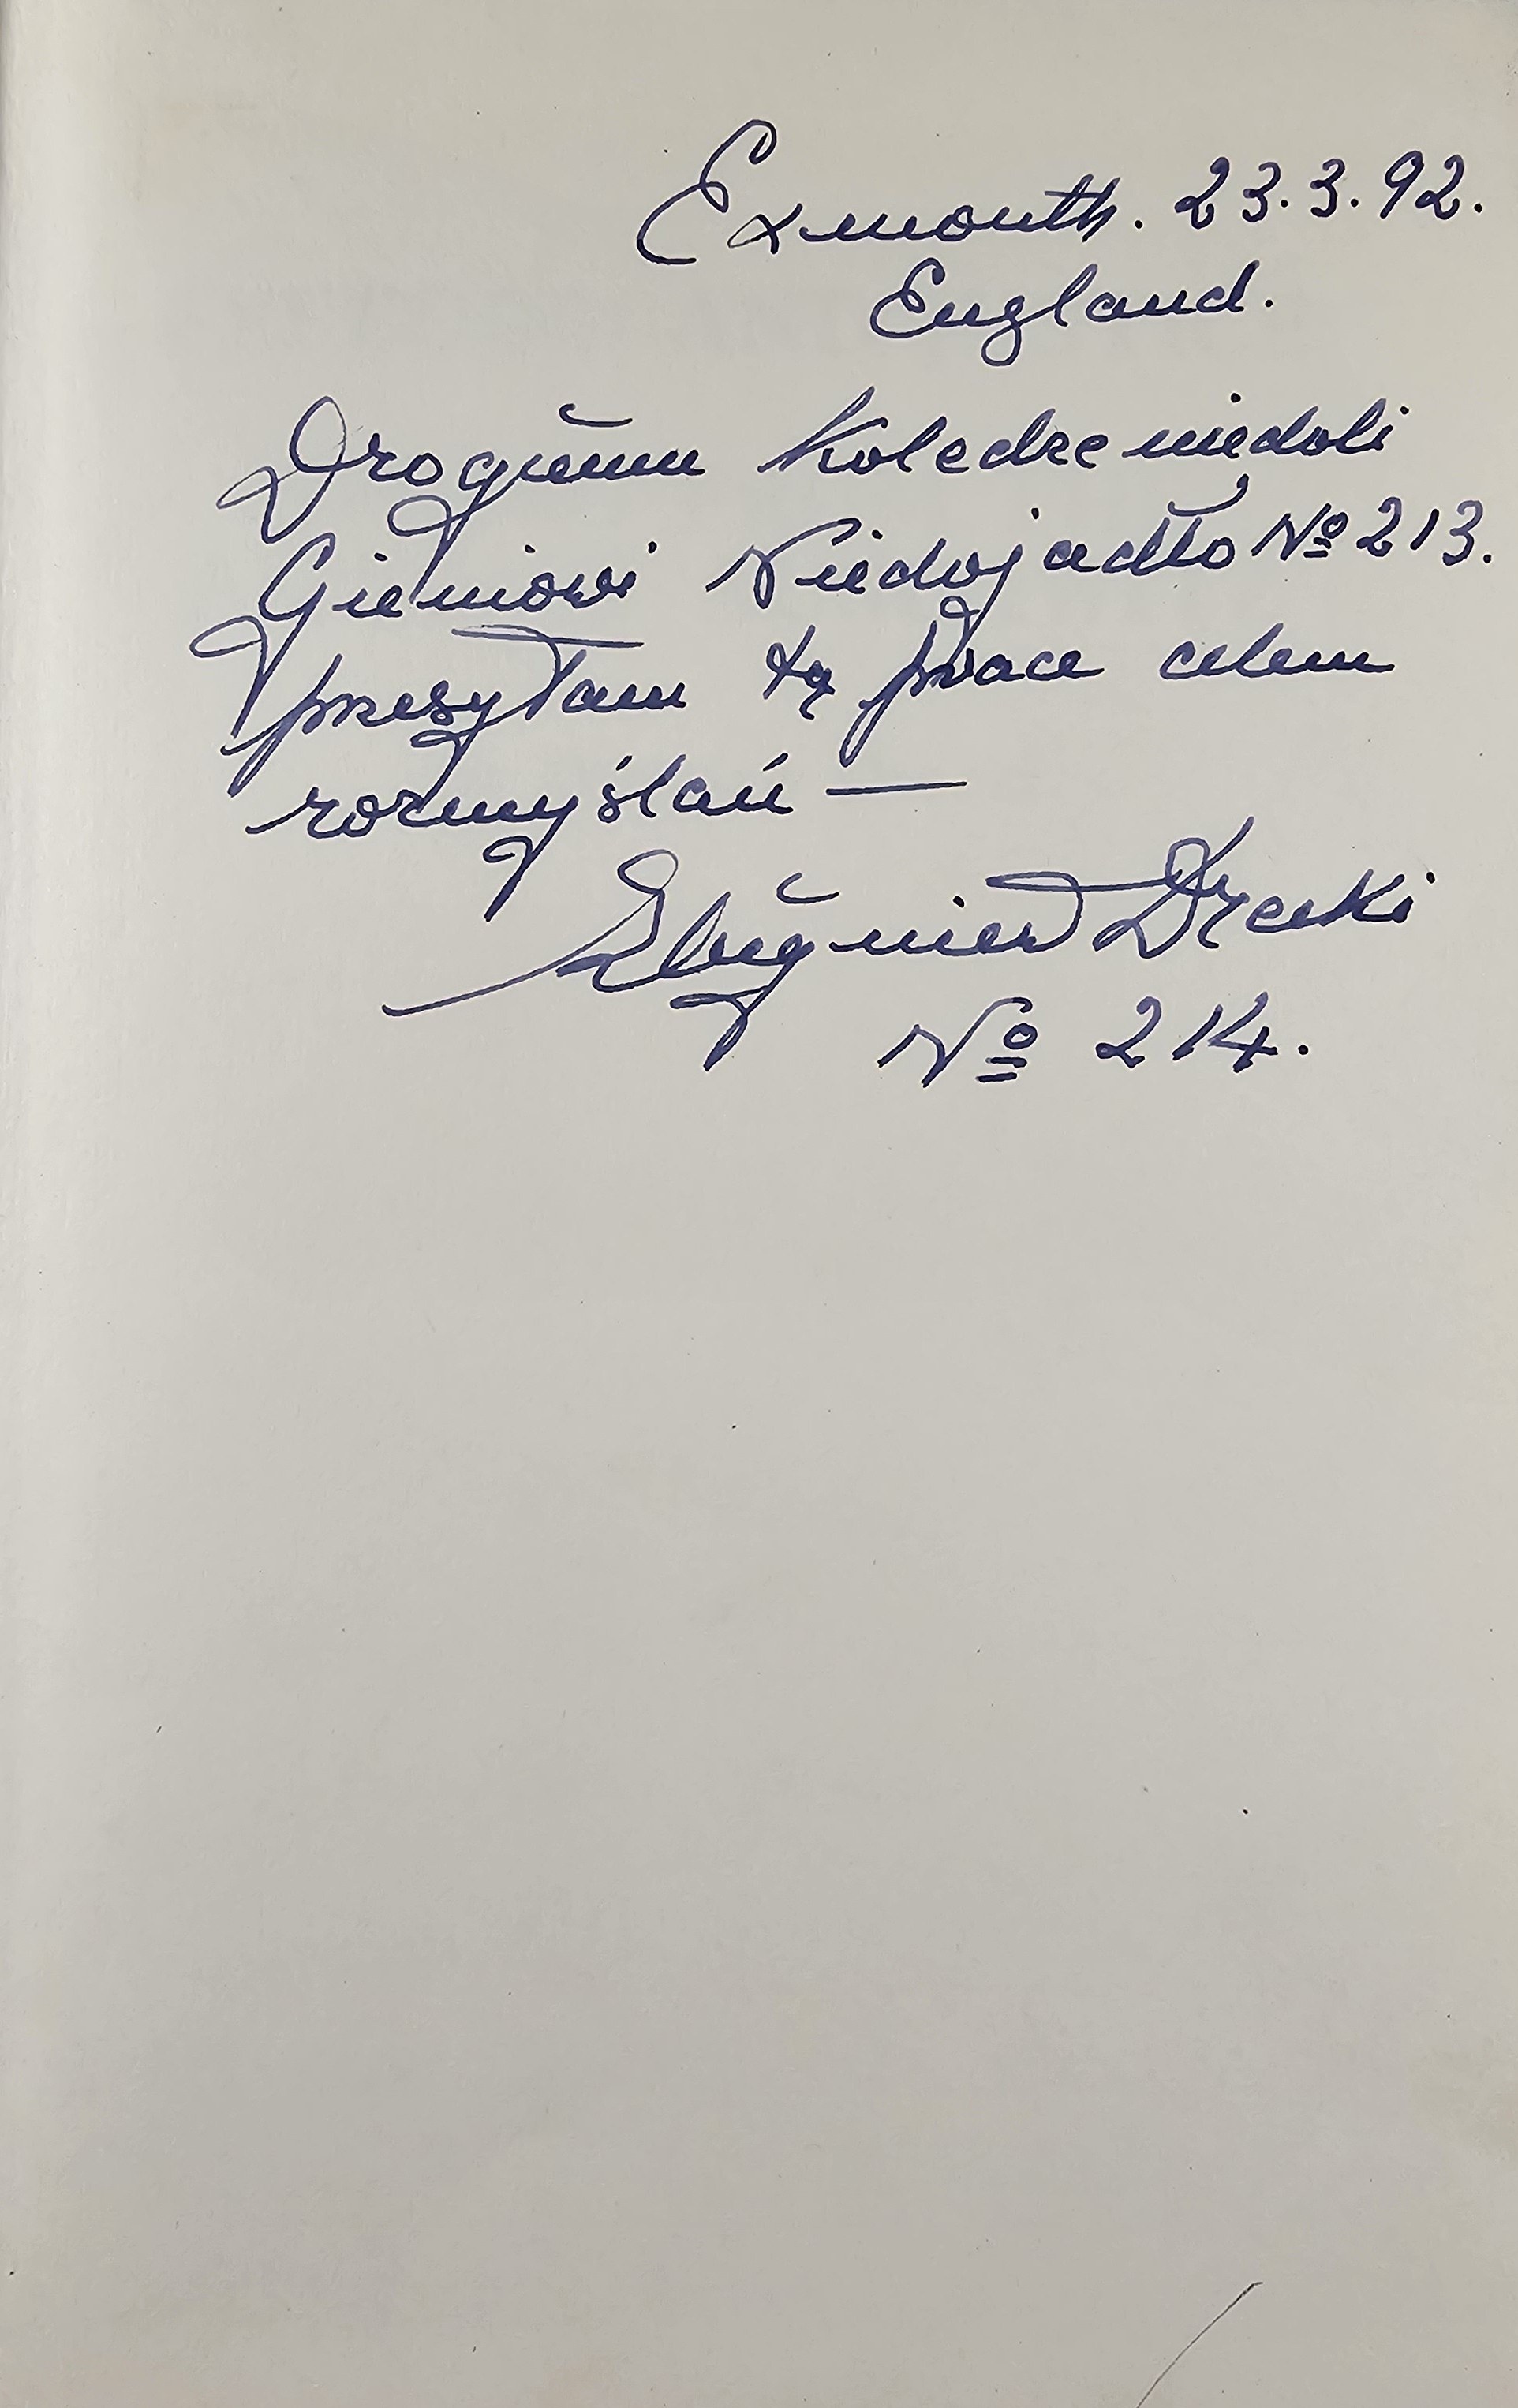 Exmouth. 23.3.92.
England.
Drogiemu Koledze niedoli
Gieniowi Niedojadło Nº 213.
przesyłam tą prace celem
rozmyślań —
Zbigniew Drecki
Nº 214.